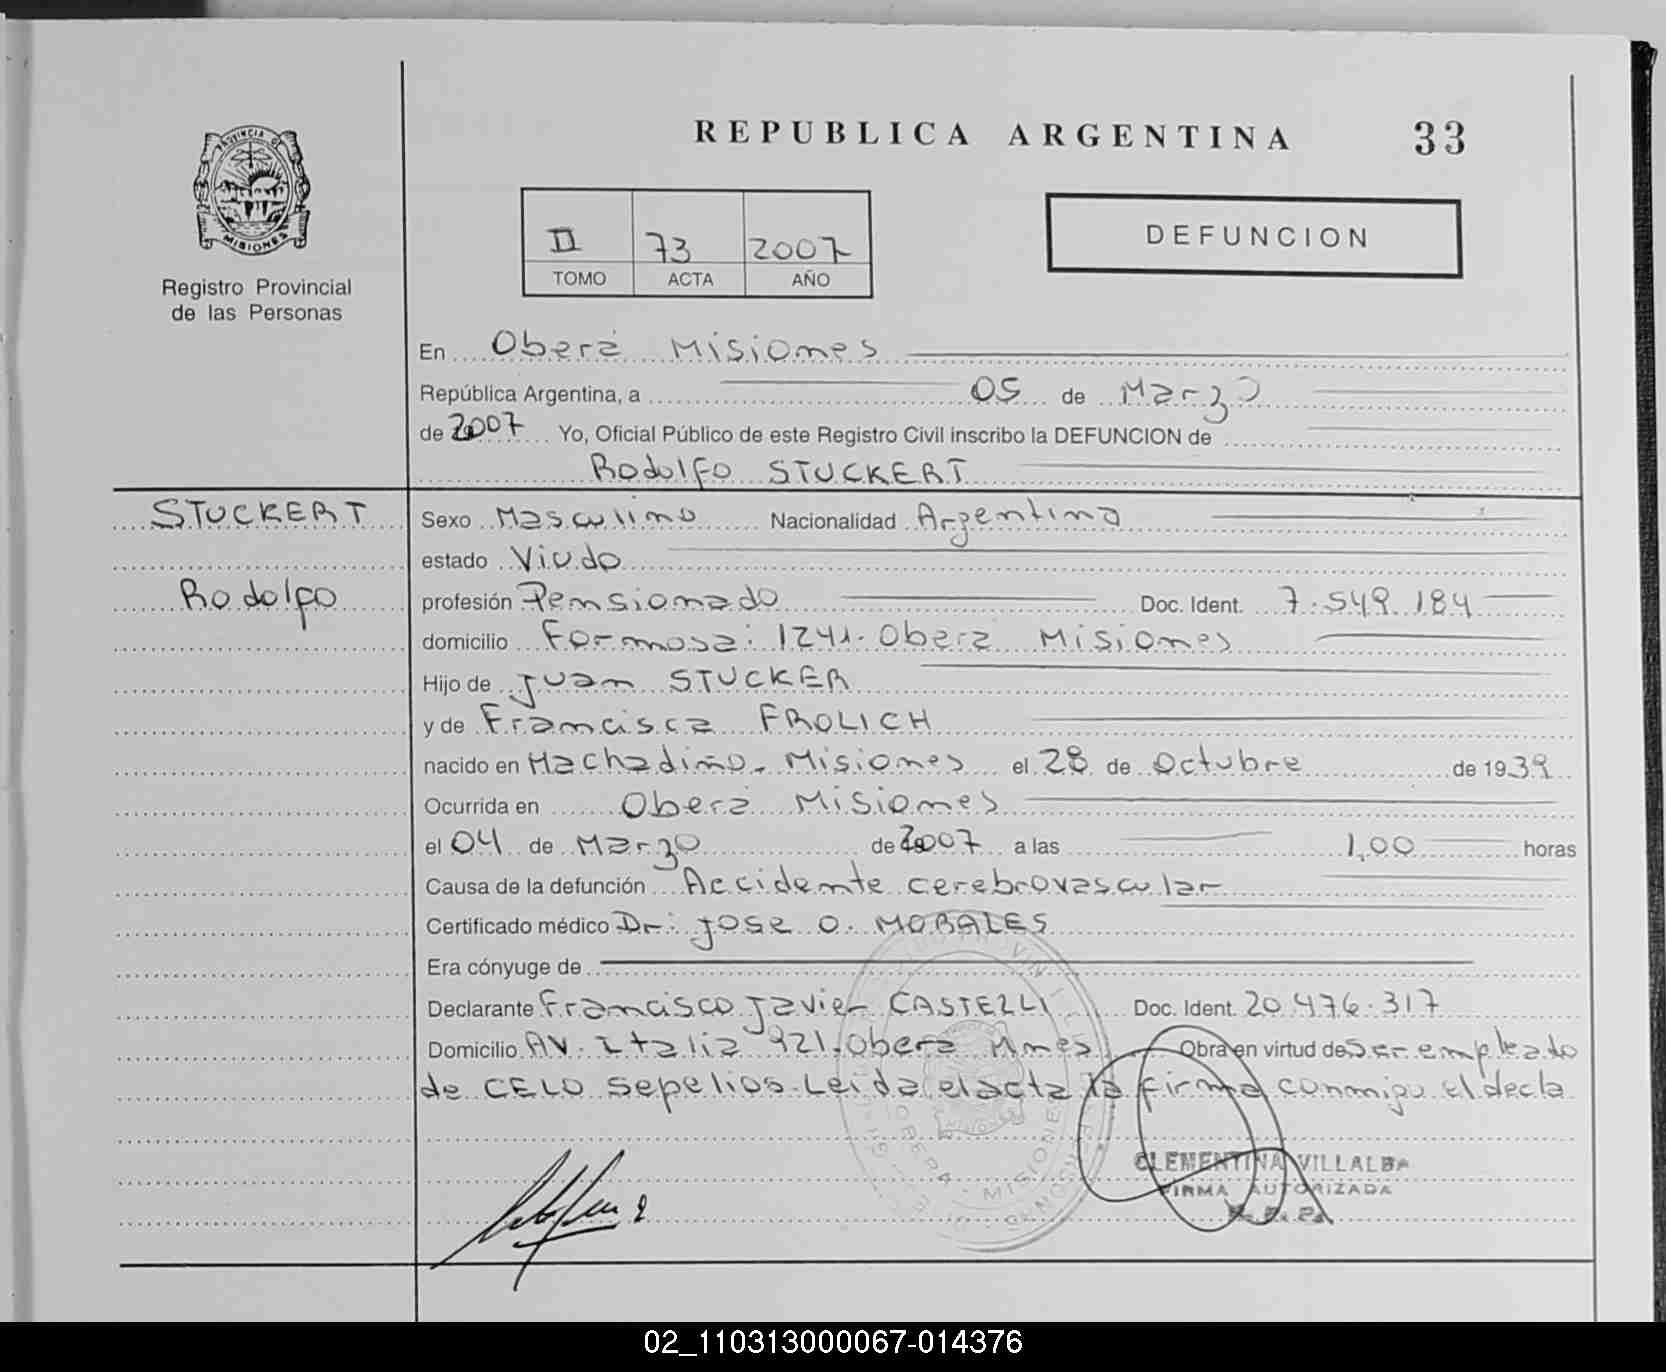 PROVINCIA DE
MISIONES
Registro Provincial
de las Personas
REPUBLICA ARGENTINA 33
II 73 2007
TOMO ACTA AÑO
DEFUNCION
En Oberá Misiones
República Argentina, a 05 de Marzo
de 2007 Yo, Oficial Público de este Registro Civil inscribo la DEFUNCION de
Rodolfo STUCKERT
STUCKERT
Rodolfo
Sexo Masculino Nacionalidad Argentina
estado Viudo
profesión Pensionado Doc. Ident. 7.549.184
domicilio Formosa: 1241. Obera Misiones
Hijo de Juan STUCKER
y de Francisca FROLICH
nacido en Machadiño. Misiones el 28 de Octubre de 1939
Ocurrida en Obera Misiones
el 04 de Marzo de 2007 a las 1,00 horas
Causa de la defunción Accidente cerebrovascular
Certificado médico Dr: Jose O. MORALES
Era cónyuge de
Declarante Francisco Javier CASTELLI Doc. Ident. 20.476.317
Domicilio AV. Italia 921. Obera Mnes Obra en virtud de Ser empleado
de CELO Sepelios. Leida el acta la firma conmigo el decla
OBERA - MISIONES
CLEMENTINA VILLALBA
FIRMA AUTORIZADA
02_110313000067-014376